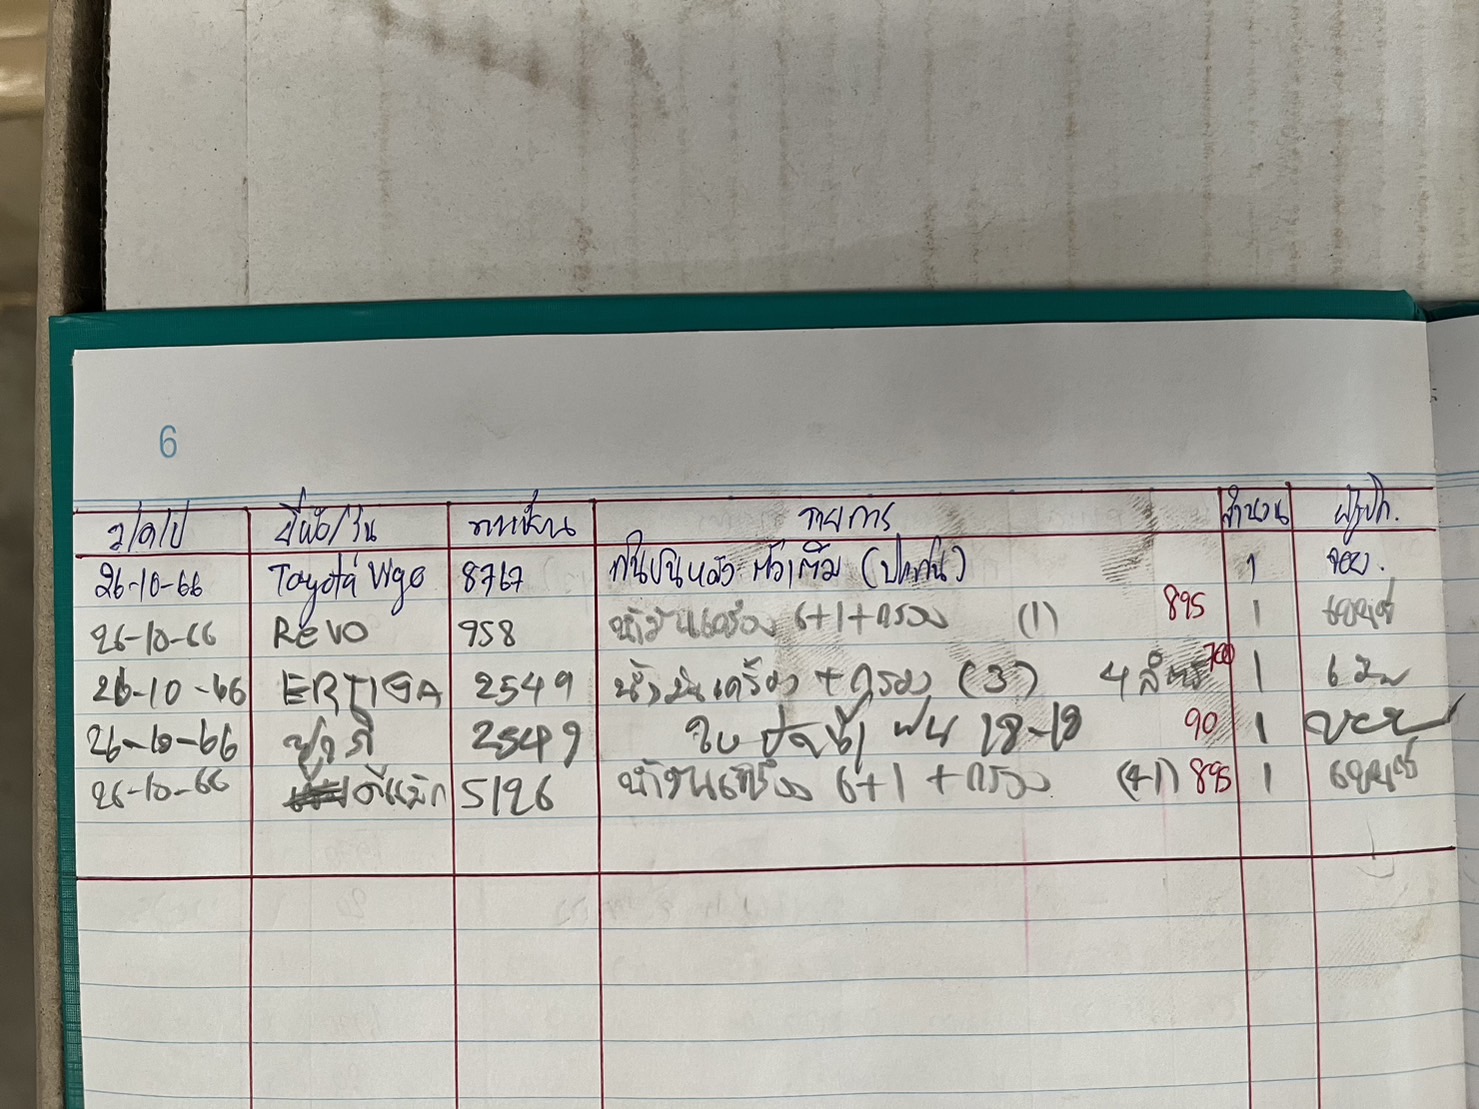 6
ว/ด/ป ยี่ห้อ/รุ่น ทะเบียน รายการ จำนวน ผู้เบิก.
26-10-66 Toyota Vigo 8767 หลัง 1
26-10-66 Revo 958 น้ำมันเครื่อง 6+1+กรอง (1) 895 1
26-10-66 ERTIGA 2549 น้ำมันเครื่อง + กรอง (3) 4 ลิตร 700 1
26-10-66 2549 ใบปัดน้ำฝน 18-18 90 1
26-10-66 ดีแม็ก 5126 น้ำมันเครื่อง 6+1 + กรอง (+1) 895 1